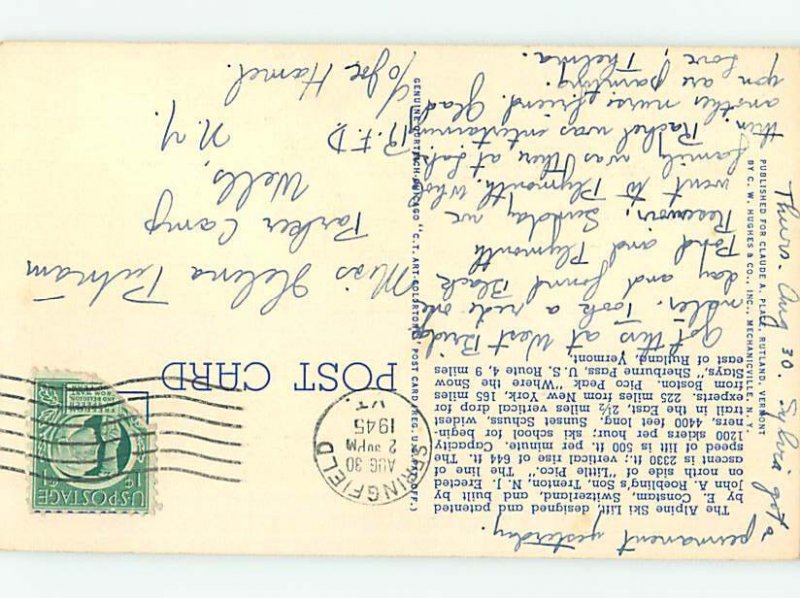 The Alpine Ski Lift, designed and patented
by E. Constam, Switzerland, and built by
John A. Roebling's Son, Trenton, N. J. Erected
on north side of "Little Pico." The line of
ascent is 2330 ft.; vertical rise of 644 ft. The
speed of lift is 500 ft. per minute. Capacity
1200 skiers per hour; ski school for begin-
ners, 4400 feet long. Sunset Schuss, widest
trail in the East, 2½ miles vertical drop for
experts. 225 miles from New York, 165 miles
from Boston. Pico Peak "Where the Snow
Stays," Sherburne Pass, U. S. Route 4, 9 miles
east of Rutland, Vermont.
Got this at West Bridg
Took a ride one
day and found Black
Pond and Plymouth
Reservoir, Sunday we
went to Plymouth. Whole
family was there at
then. Rachel was entertaining
another nurse friend. Glad
you are painting.
Love, Thelma.
Thurs. Aug 30. Sylvia got a
permanent yesterday.
PUBLISHED FOR CLAUDE A. PLACE, RUTLAND, VERMONT
BY C. W. HUGHES & CO., INC., MECHANICVILLE, N. Y.
GENUINE CURTEICH-CHICAGO "C.T. ART-COLORTONE" POST CARD (REG. U.S. PAT. OFF.)
POST CARD
SPRINGFIELD
AUG 30
2 30 PM
1945
VT.
U.S. POSTAGE
1¢
Miss Helena Putnam
Parker Camp
Wells,
R.F.D. N.Y.
℅ Joe Hamel.